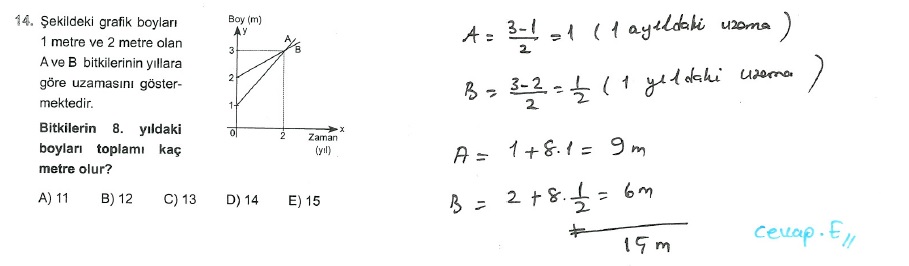 14. Şekildeki grafik boyları
1 metre ve 2 metre olan
A ve B bitkilerinin yıllara
göre uzamasını göster-
mektedir.
Bitkilerin 8. yıldaki
boyları toplamı kaç
metre olur?
Boy (m)
y
A
B
3
2
1
0
2
x
Zaman
(yıl)
A) 11 B) 12 C) 13 D) 14 E) 15
A = 3-1/2 = 1 (1 ayıldaki uzama)
B = 3-2/2 = 1/2 (1 yıldaki uzama)
A = 1+8.1 = 9m
B = 2+8.1/2 = 6m
+
15 m
cevap.E//